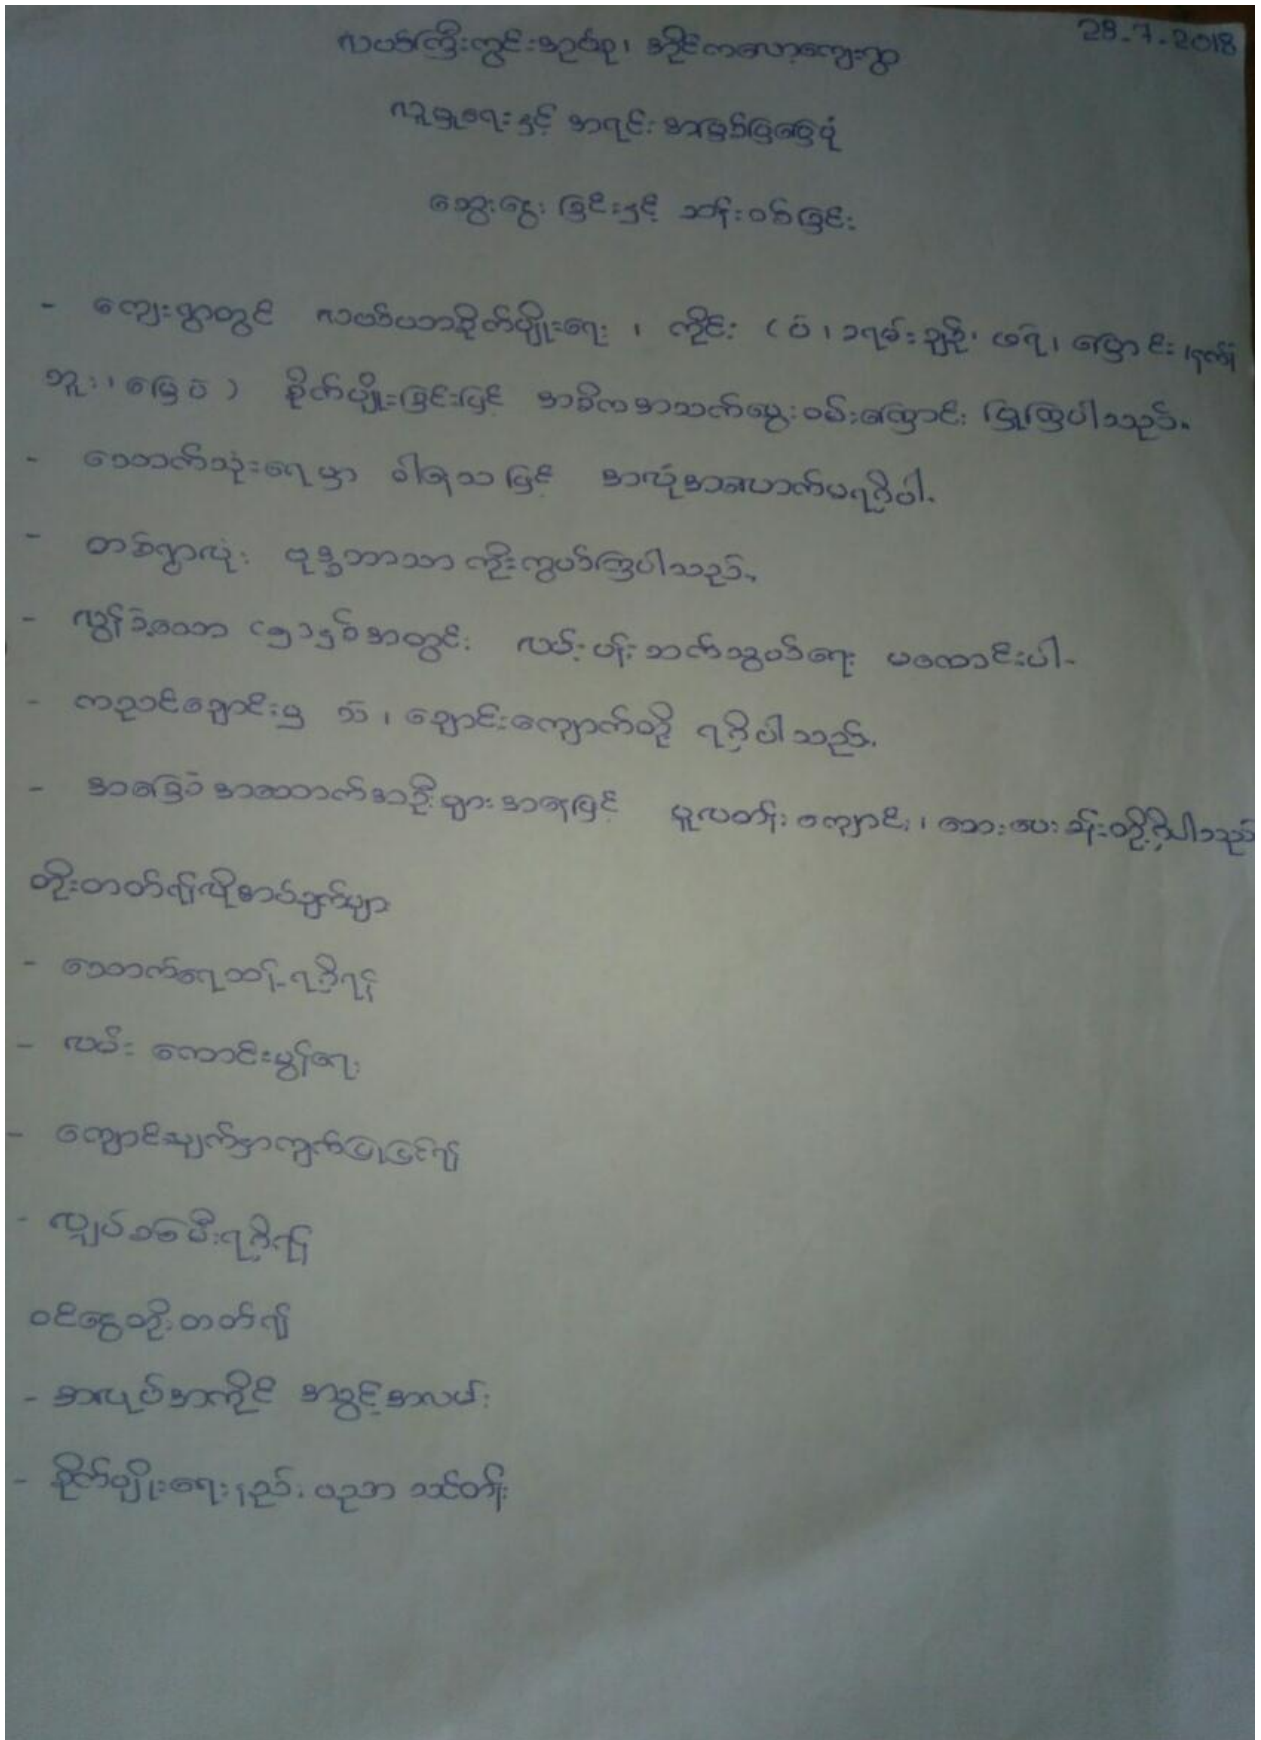 28-7-2018
လယ်ကြီးကွင်းအုပ်စု၊ အိုင်ကလော့ကျေးရွာ
လူမှုရေးနှင့် အရင်းအမြစ်ပြမြေပုံ
ဆွေးနွေးခြင်းနှင့် ဆန်းစစ်ခြင်း
- ကျေးရွာတွင် လယ်ယာစိုက်ပျိုးရေး ၊ ကိုင်း (ပဲ ၊ ခရမ်းချဉ်၊ ဖရဲ၊ ပြောင်း ၊
ဘူး၊ မြေပဲ ) စိုက်ပျိုးခြင်းဖြင့် အဓိကအသက်မွေးဝမ်းကြောင်း ပြုကြပါသည်။
- သောက်သုံးရေမှာ ဝါရသဖြင့် အလုံအလောက်မရှိပါ.
- တစ်ရွာလုံး ဗုဒ္ဓဘာသာ ကိုးကွယ်ကြပါသည်။
- လွန်ခဲ့သော (၅)နှစ်အတွင်း လမ်းပန်းဆက်သွယ်ရေး မကောင်းပါ-
- ကညင်ချောင်းမှ သဲ ၊ ချောင်းကျောက်တို့ ရရှိပါသည်.
- အခြေခံအဆောက်အဦးများအနေဖြင့် မူလတန်းကျောင်း ၊ ဆေးပေးခန်းတို့ရှိပါသည်
တိုးတတ်ရန်လိုအပ်ချက်များ
- သောက်ရေသန့်ရရှိရန်
- လမ်း ကောင်းမွန်ရေး
- ကျောင်းမျက်နှာကျက်ပြုပြင်ရန်
- လျှပ်စစ်မီးရရှိရန်
ဝင်ငွေတိုးတတ်ရန်
- အလုပ်အကိုင် အခွင့်အလမ်း
- စိုက်ပျိုးရေးနည်းပညာ သင်တန်း